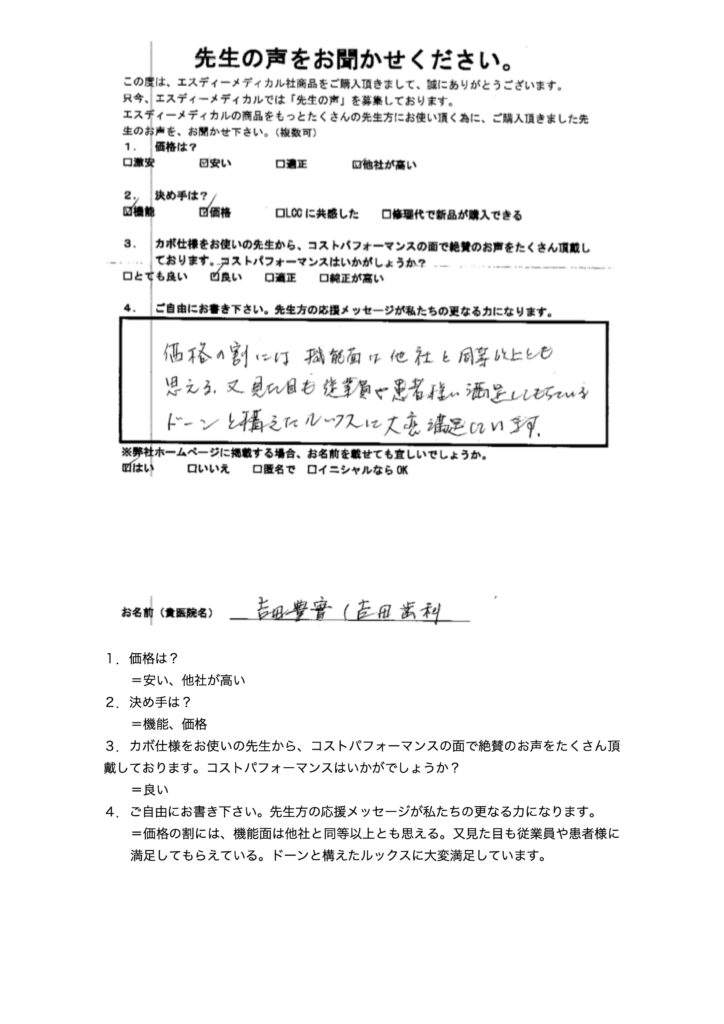 先生の声をお聞かせください。
この度は、エスディーメディカル社商品をご購入頂きまして、誠にありがとうございます。
只今、エスディーメディカルでは「先生の声」を募集しております。
エスディーメディカルの商品をもっとたくさんの先生方にお使い頂く為に、ご購入頂きました先
生のお声を、お聞かせ下さい。(複数可)
1. 価格は?
□激安 ☑安い □適正 ☑他社が高い
2. 決め手は?
☑機能 ☑価格 □LCCに共感した □修理代で新品が購入できる
3. カボ仕様をお使いの先生から、コストパフォーマンスの面で絶賛のお声をたくさん頂戴し
ております。コストパフォーマンスはいかがしょうか?
□とても良い ☑良い □適正 □純正が高い
4. ご自由にお書き下さい。先生方の応援メッセージが私たちの更なる力になります。
価格の割には 機能面は他社と同等以上とも
思える。又見た目も従業員や患者様に満足してもらえている
ドーンと構えたルックスに大変満足しています。
※弊社ホームページに掲載する場合、お名前を載せても宜しいでしょうか。
☑はい □いいえ □匿名で □イニシャルならOK
お名前(貴医院名) 吉田豊實(吉田歯科
1.価格は?
=安い、他社が高い
2.決め手は?
=機能、価格
3.カボ仕様をお使いの先生から、コストパフォーマンスの面で絶賛のお声をたくさん頂
戴しております。コストパフォーマンスはいかがでしょうか?
=良い
4.ご自由にお書き下さい。先生方の応援メッセージが私たちの更なる力になります。
=価格の割には、機能面は他社と同等以上とも思える。又見た目も従業員や患者様に
満足してもらえている。ドーンと構えたルックスに大変満足しています。